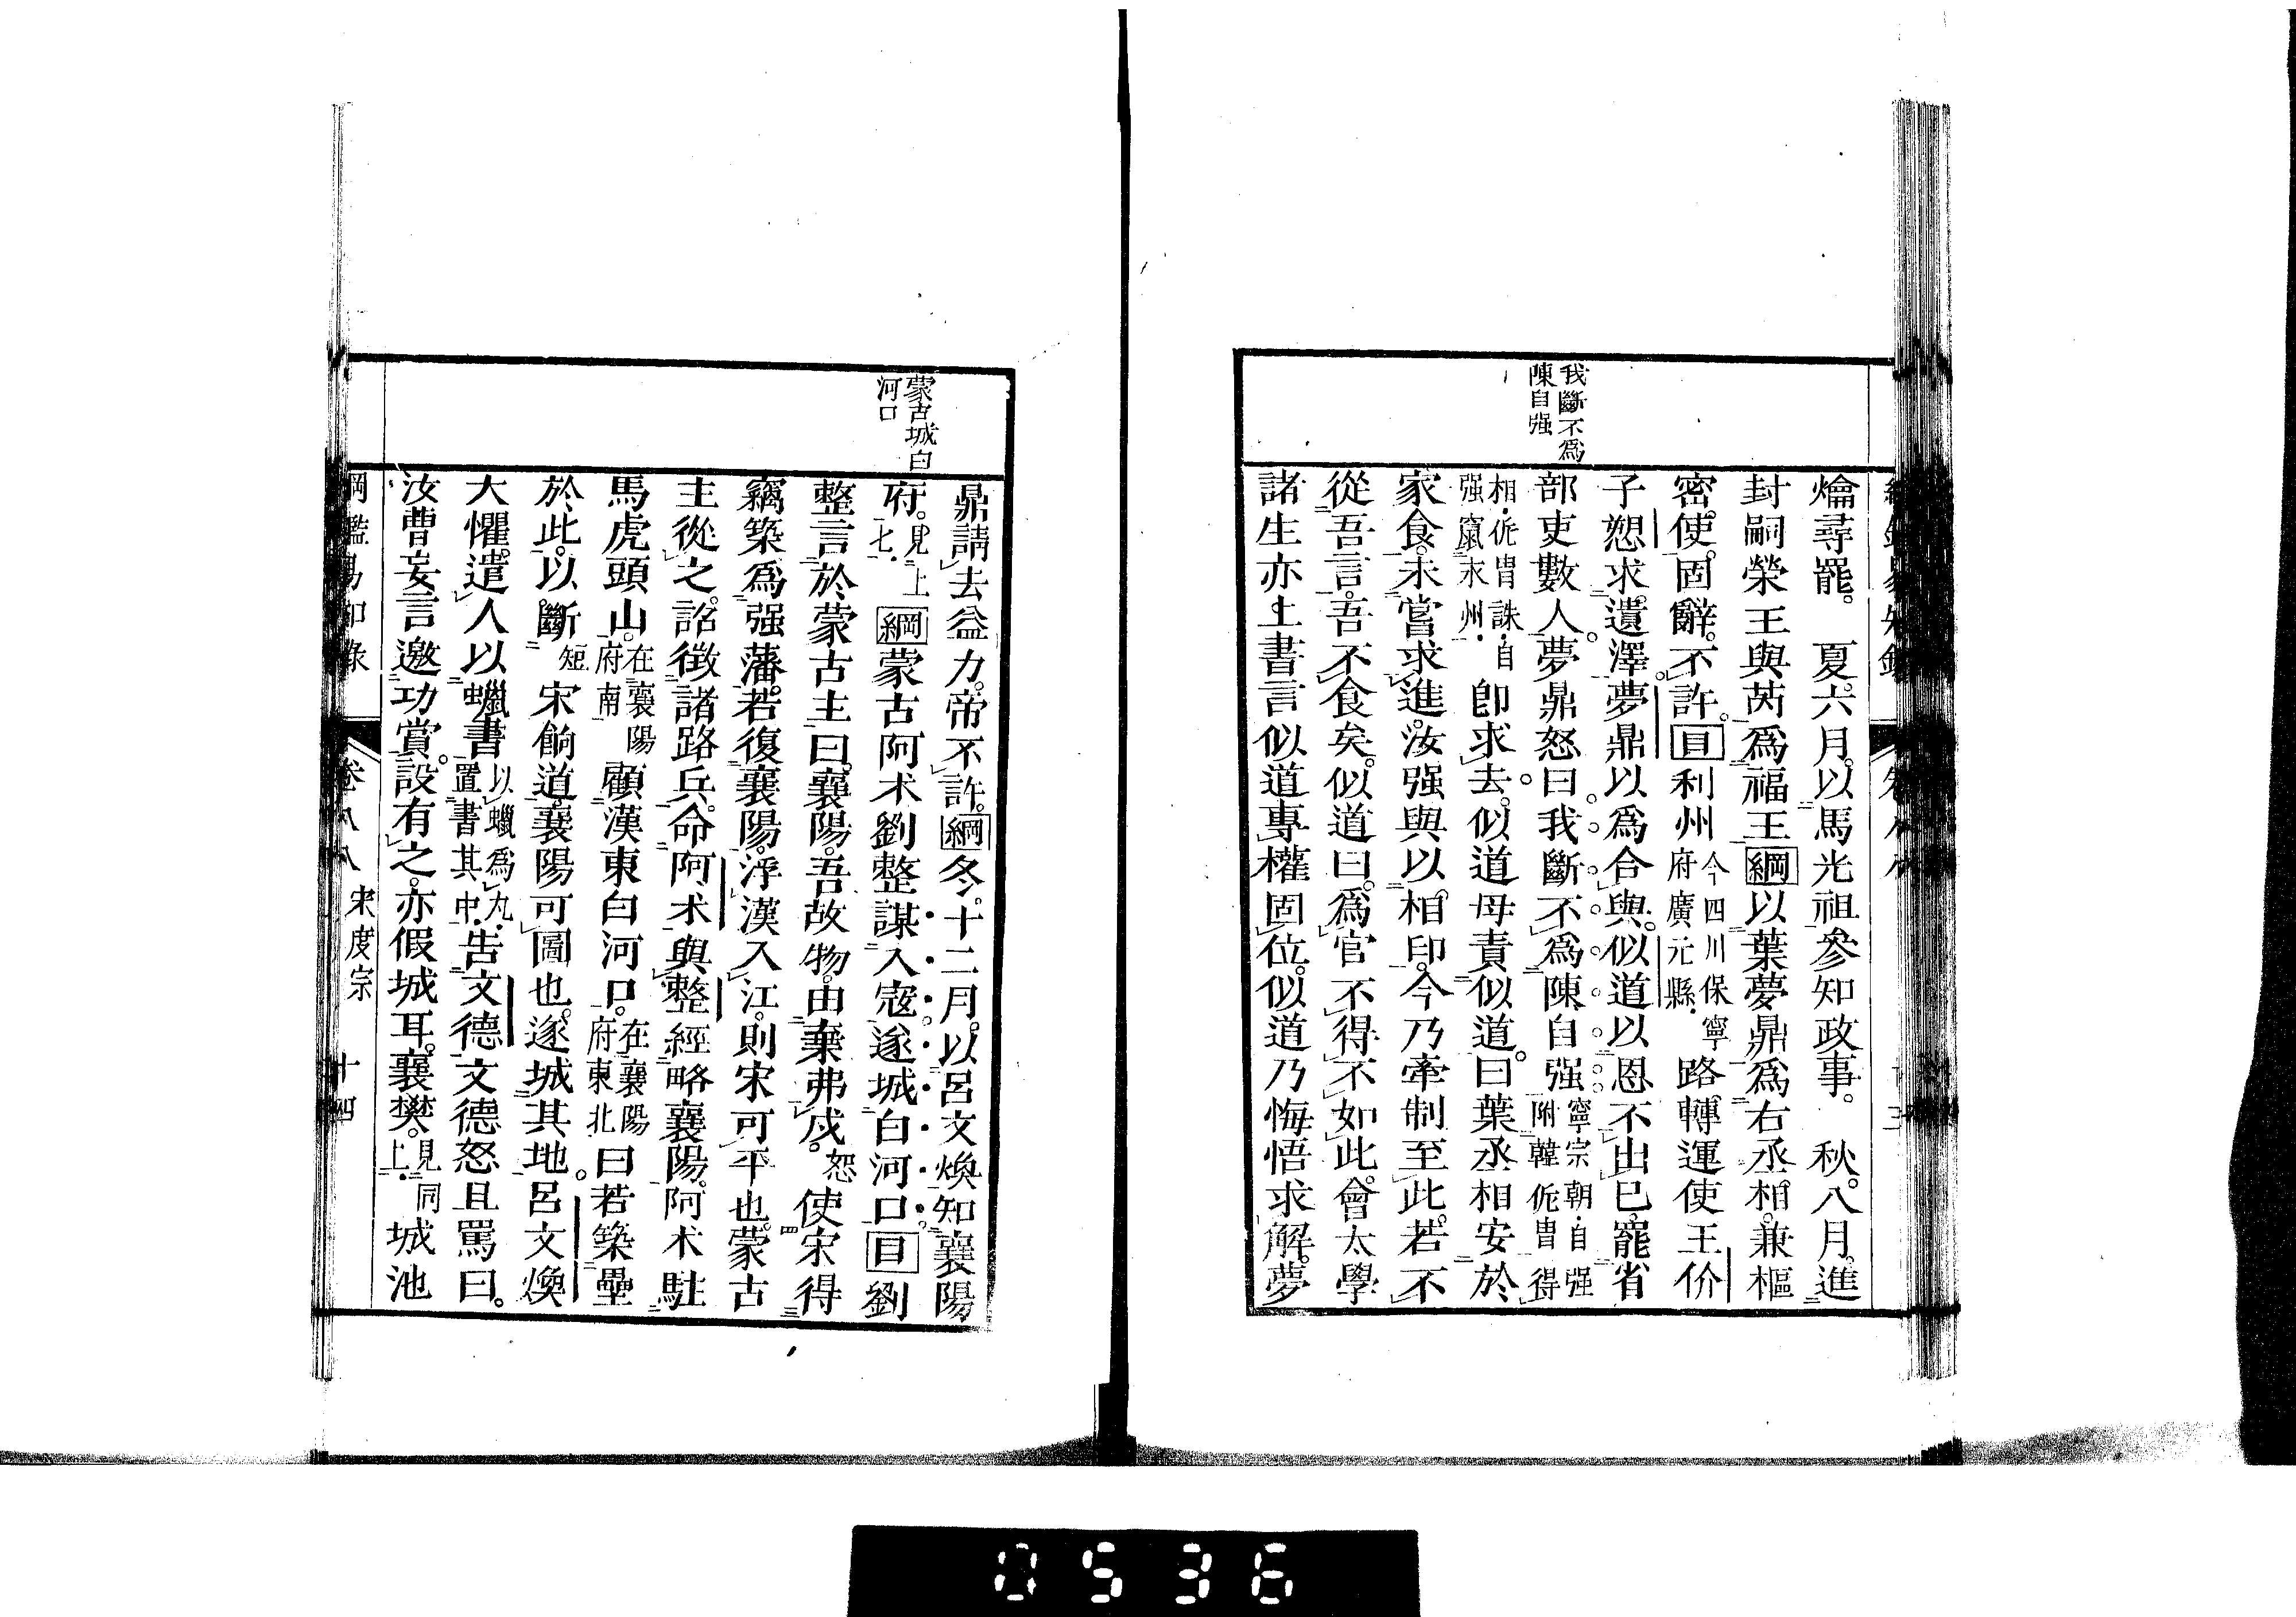 我斷不爲
陳自强
爚尋罷。 夏六月。以馬光祖參知政事。 秋。八月。進
封嗣榮王與芮爲福王綱以葉夢鼎爲右丞相。兼樞
密使。固辭。不許。目利州今四川保寧府廣元縣。路轉運使王价
子愬求遺澤。夢鼎以爲合與。似道以恩不出已。罷省
部吏數人。夢鼎怒曰。我斷不爲陳自强寧宗朝。自强附韓侂胄得
相。侂胄誅。自强竄永州。卽求去。似道母責似道。曰葉丞相安於
家食。未嘗求進。汝强與以相印。今乃牽制至此。若不
從吾言。吾不食矣。似道曰。爲官不得不如此。會太學
諸生亦上書言似道專權固位。似道乃悔悟求解。夢
蒙古城白
河口
鼎請去益力。帝不許。綱冬。十二月。以呂文煥知襄陽
府。見上七。綱蒙古阿朮劉整謀入寇。遂城白河口。目劉
整言於蒙古主曰。襄陽。吾故物。由棄弗戍。恕使宋得
竊築爲强藩。若復襄陽。浮漢入江。則宋可平也。蒙古
主從之。詔徵諸路兵。命阿朮與整經略襄陽。阿朮駐
馬虎頭山。在襄陽府南顧漢東白河口。在襄陽府東北曰若築壘
於此。以斷短宋餉道。襄陽可圖也。遂城其地。呂文煥
大懼。遣人以蠟書以蠟爲丸。置書其中。告文德文德怒且罵曰。
汝曹妄言邀功賞。設有之。亦假城耳。襄樊。見同上。城池
綱鑑易知錄 卷八八 宋度宗 十四
0536